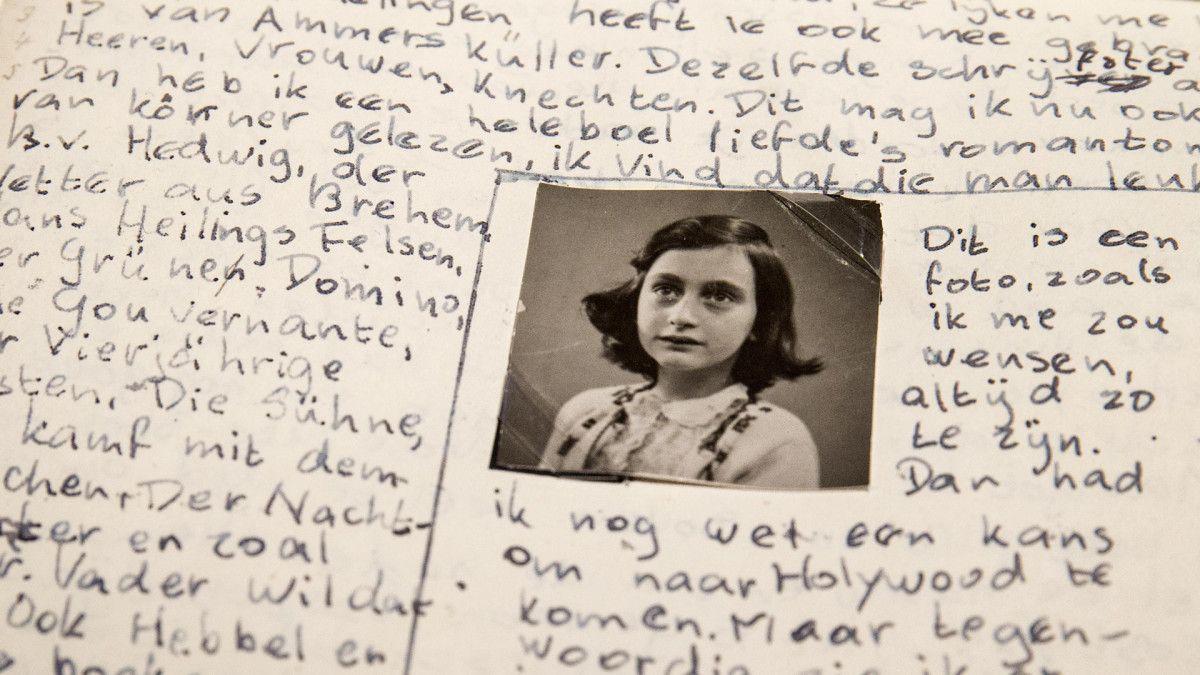 ze lijken me
lingen, heeft ie ook mee gebra
is van Ammers Küller. Dezelfde schrijfster
Heeren, Vrouwen, Knechten. Dit mag ik nu ook
Dan heb ik een heleboel liefde's romanton
van körner gelezen, ik vind dat die man leuk
B.v. Hedwig, der
Vetter aus Brehem,
ans Heilings Felsen,
er Grünen, Domino,
ie Gouvernante,
r Vierjährige
sten, Die Sühne,
kamf mit dem
chen, Der Nacht-
ter en zoal
r. Vader wil dat
Ook Hebbel en
Dit is een
foto, zoals
ik me zou
wensen,
altijd zo
te zijn.
Dan had
ik nog wel een kans
om naar Holywood te
komen. Maar tegen-
woordig